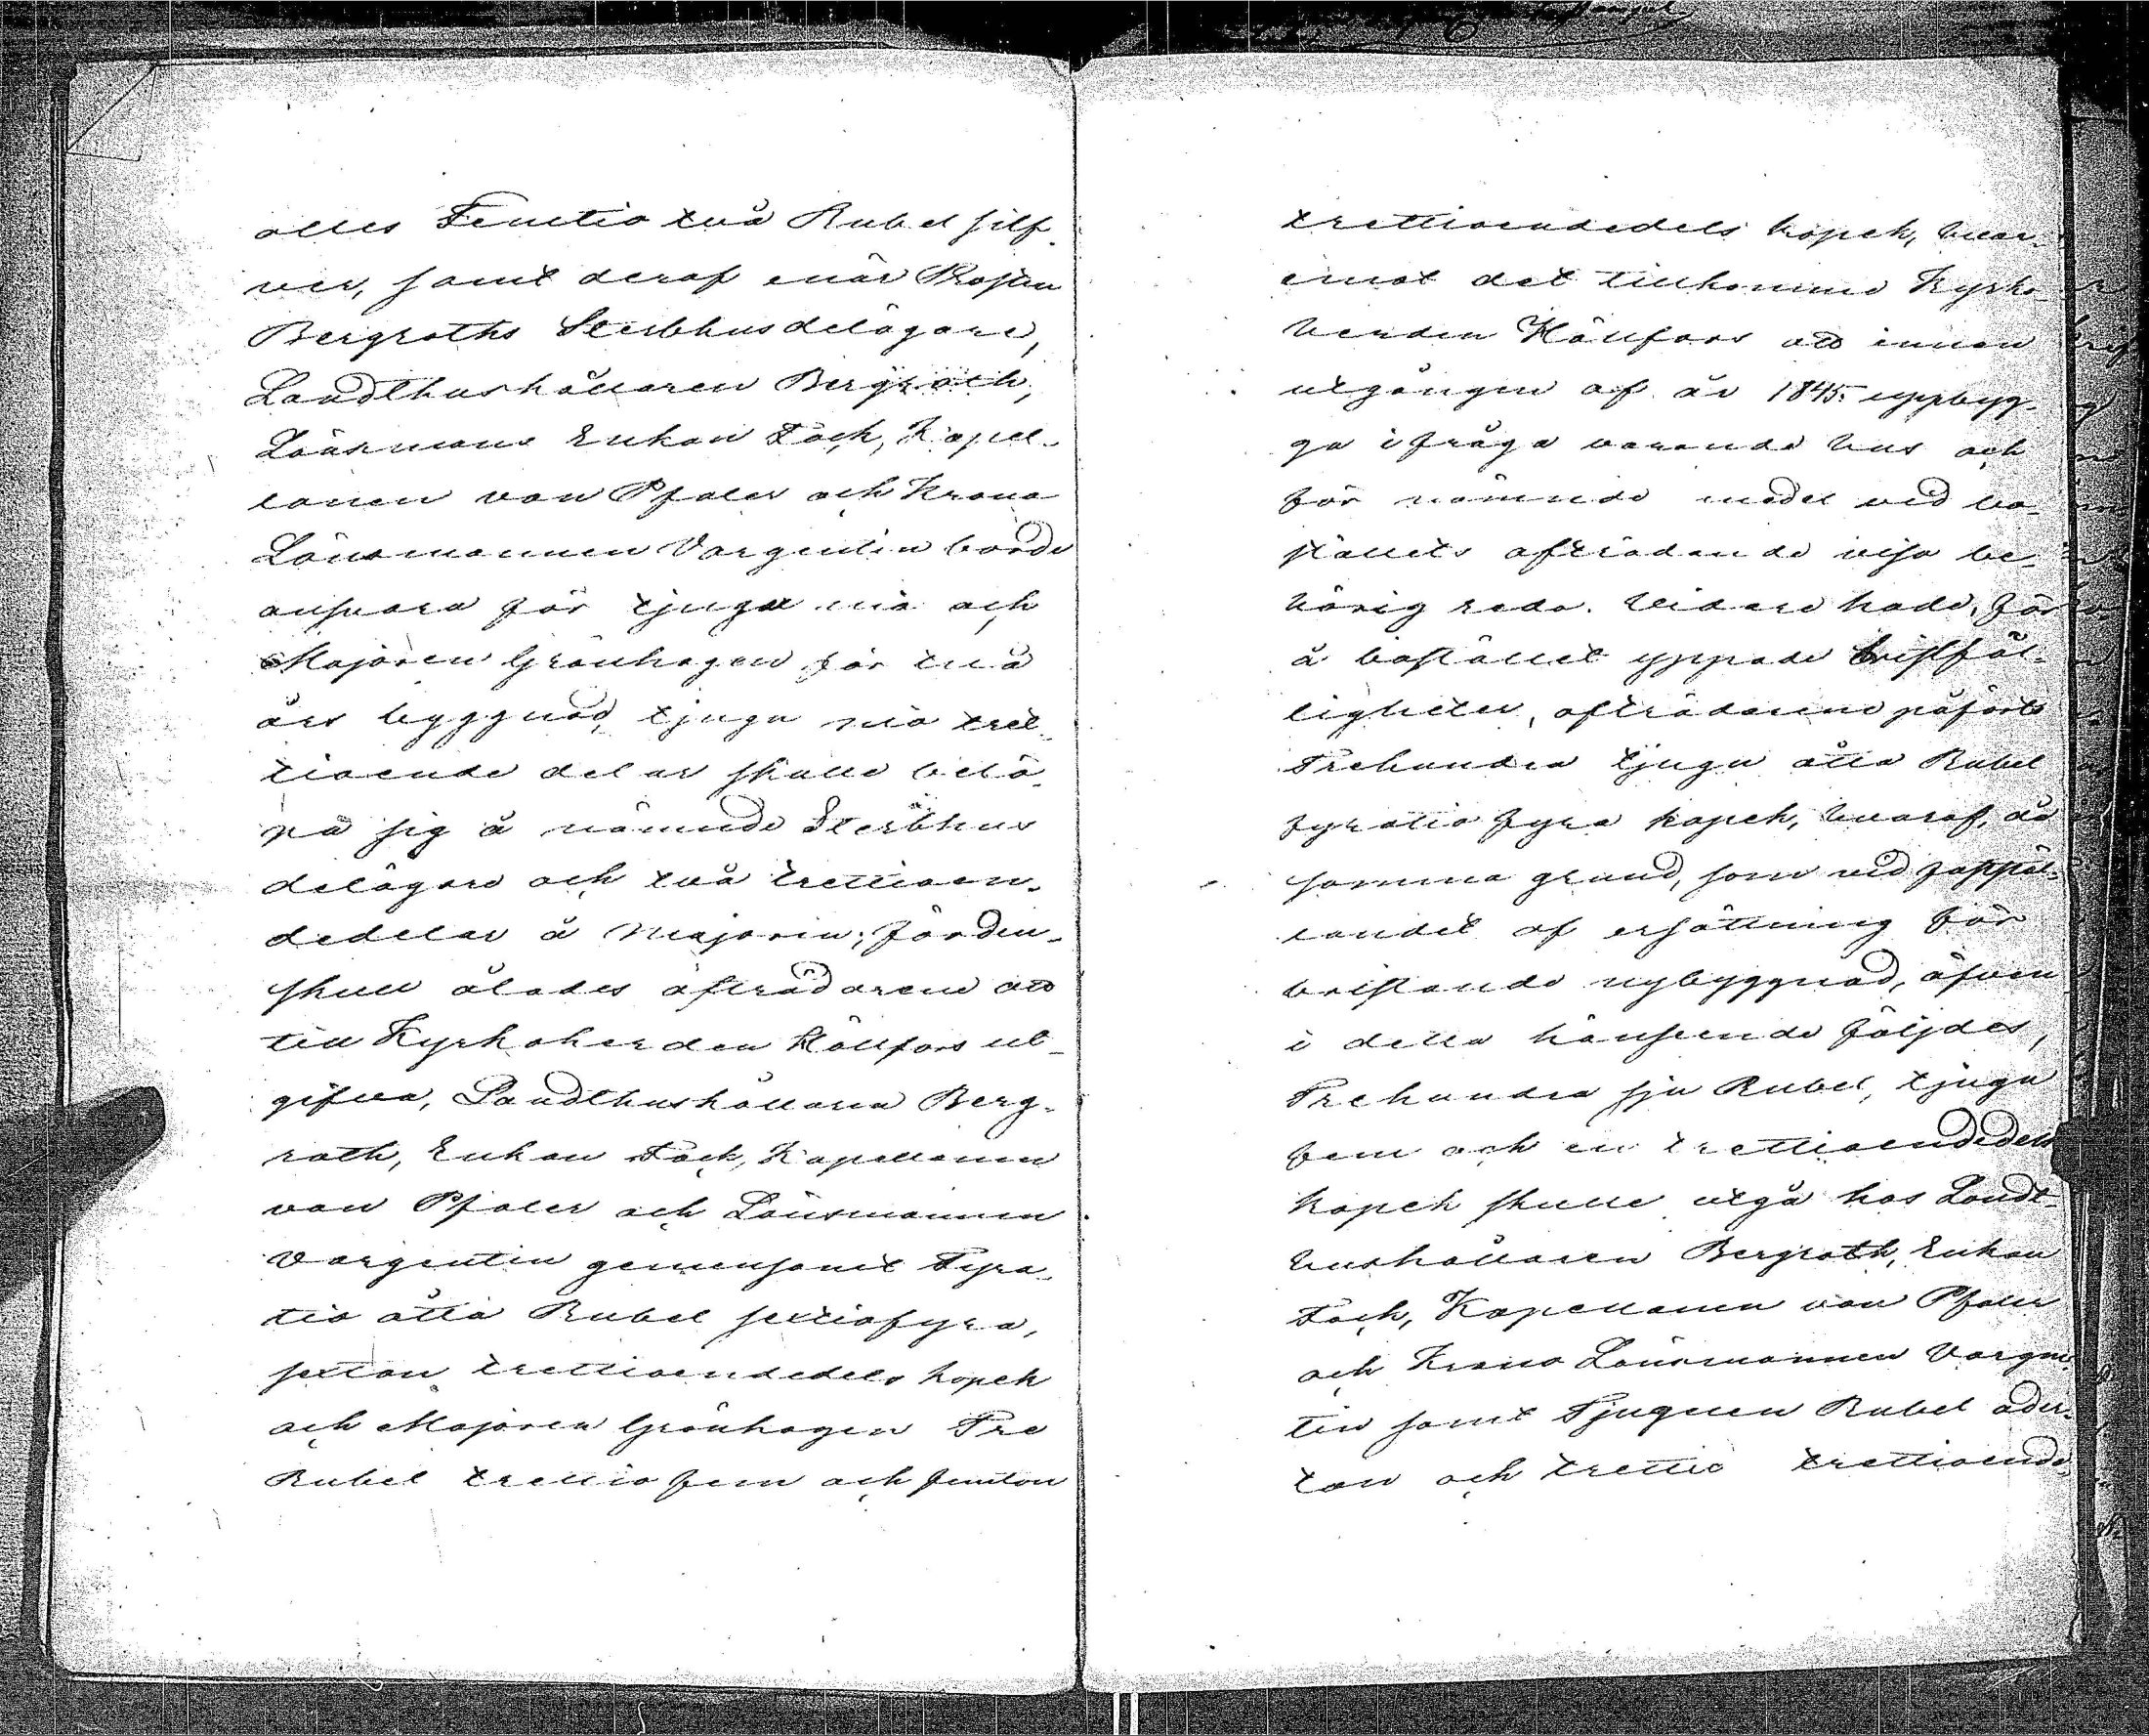 alles Femtio två Rubel silf
ver, samt deraf enär Prosten
Bergroths Sterbhusdelägare,
Landthushållaren Bergroth,
Länsmans Enkan Töck, Kapel-
lanen von Pfaler och Krono
Länsmannen Vargentin borde
ansvara för tjugu nio och
Majoren Grönhagen för två
års byggnad, tjugu nio tret-
tioende delar skulle belö-
pa sig å nämnde Sterbhus
delägare och två trettioen-
dedelar å Majoren; Förden-
skull ålades afträdarene att
till Kyrkoherden Hällfors ut-
gifva, Landthushållaren Berg-
roth, Enkan Töck, Kapellanen
von Pfaler och Länsmannen
Vargentin gemensamt Fyra-
tio åtta Rubel sextiofyra,
sexton trettioendedels kopek
och Majoren Grönhagen Tre
Rubel trettiofem och femton
trettioendedels kopek, hvar-
emot det tillkomme Kyrko-
herden Hällfors att innan
utgången af år 1845 uppbyg-
ga ifråga varande hus och
för nämnde medel vid bo-
ställets afträdande visa be-
hörig reda. Vidare hade, för
å bostället yppade bristfäl-
ligheter, afträdarene påförts
Trehundra tjugu åtta Rubel
fyratio fyra kopek, hvaraf, då
samma grund, som vid
landet af ersättning för
bristande nybyggnad, äfven
i detta hänseende följdes,
Trehundra sju Rubel, tjugu
fem och en trettioendedels
kopek skulle utgå hos Landt-
hushållaren Bergroth, Enkan
Töck, Kapellanen von Pfaler
och Krono Länsmannen Vargen-
tin samt Tjuguen Rubel ader-
ton och trettio trettioende-